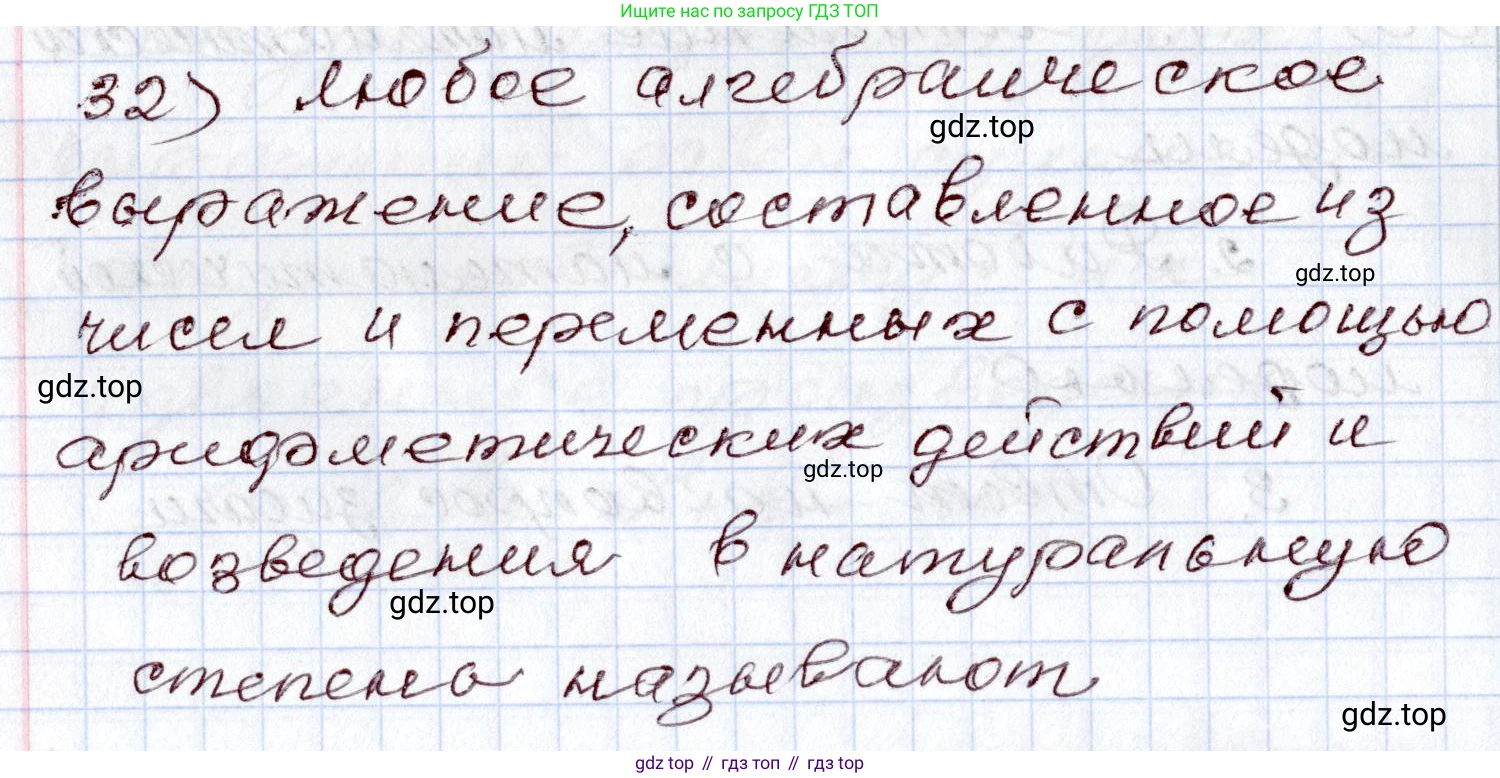 Ищите нас по запросу ГДЗ ТОП
32) Любое алгебраическое
gdz.top
выражение, составленное из
gdz.top
чисел и переменных с помощью
gdz.top
арифметических действий и
gdz.top
возведения в натуральную
gdz.top
степень называют
gdz.top
gdz top // гдз топ // gdz top